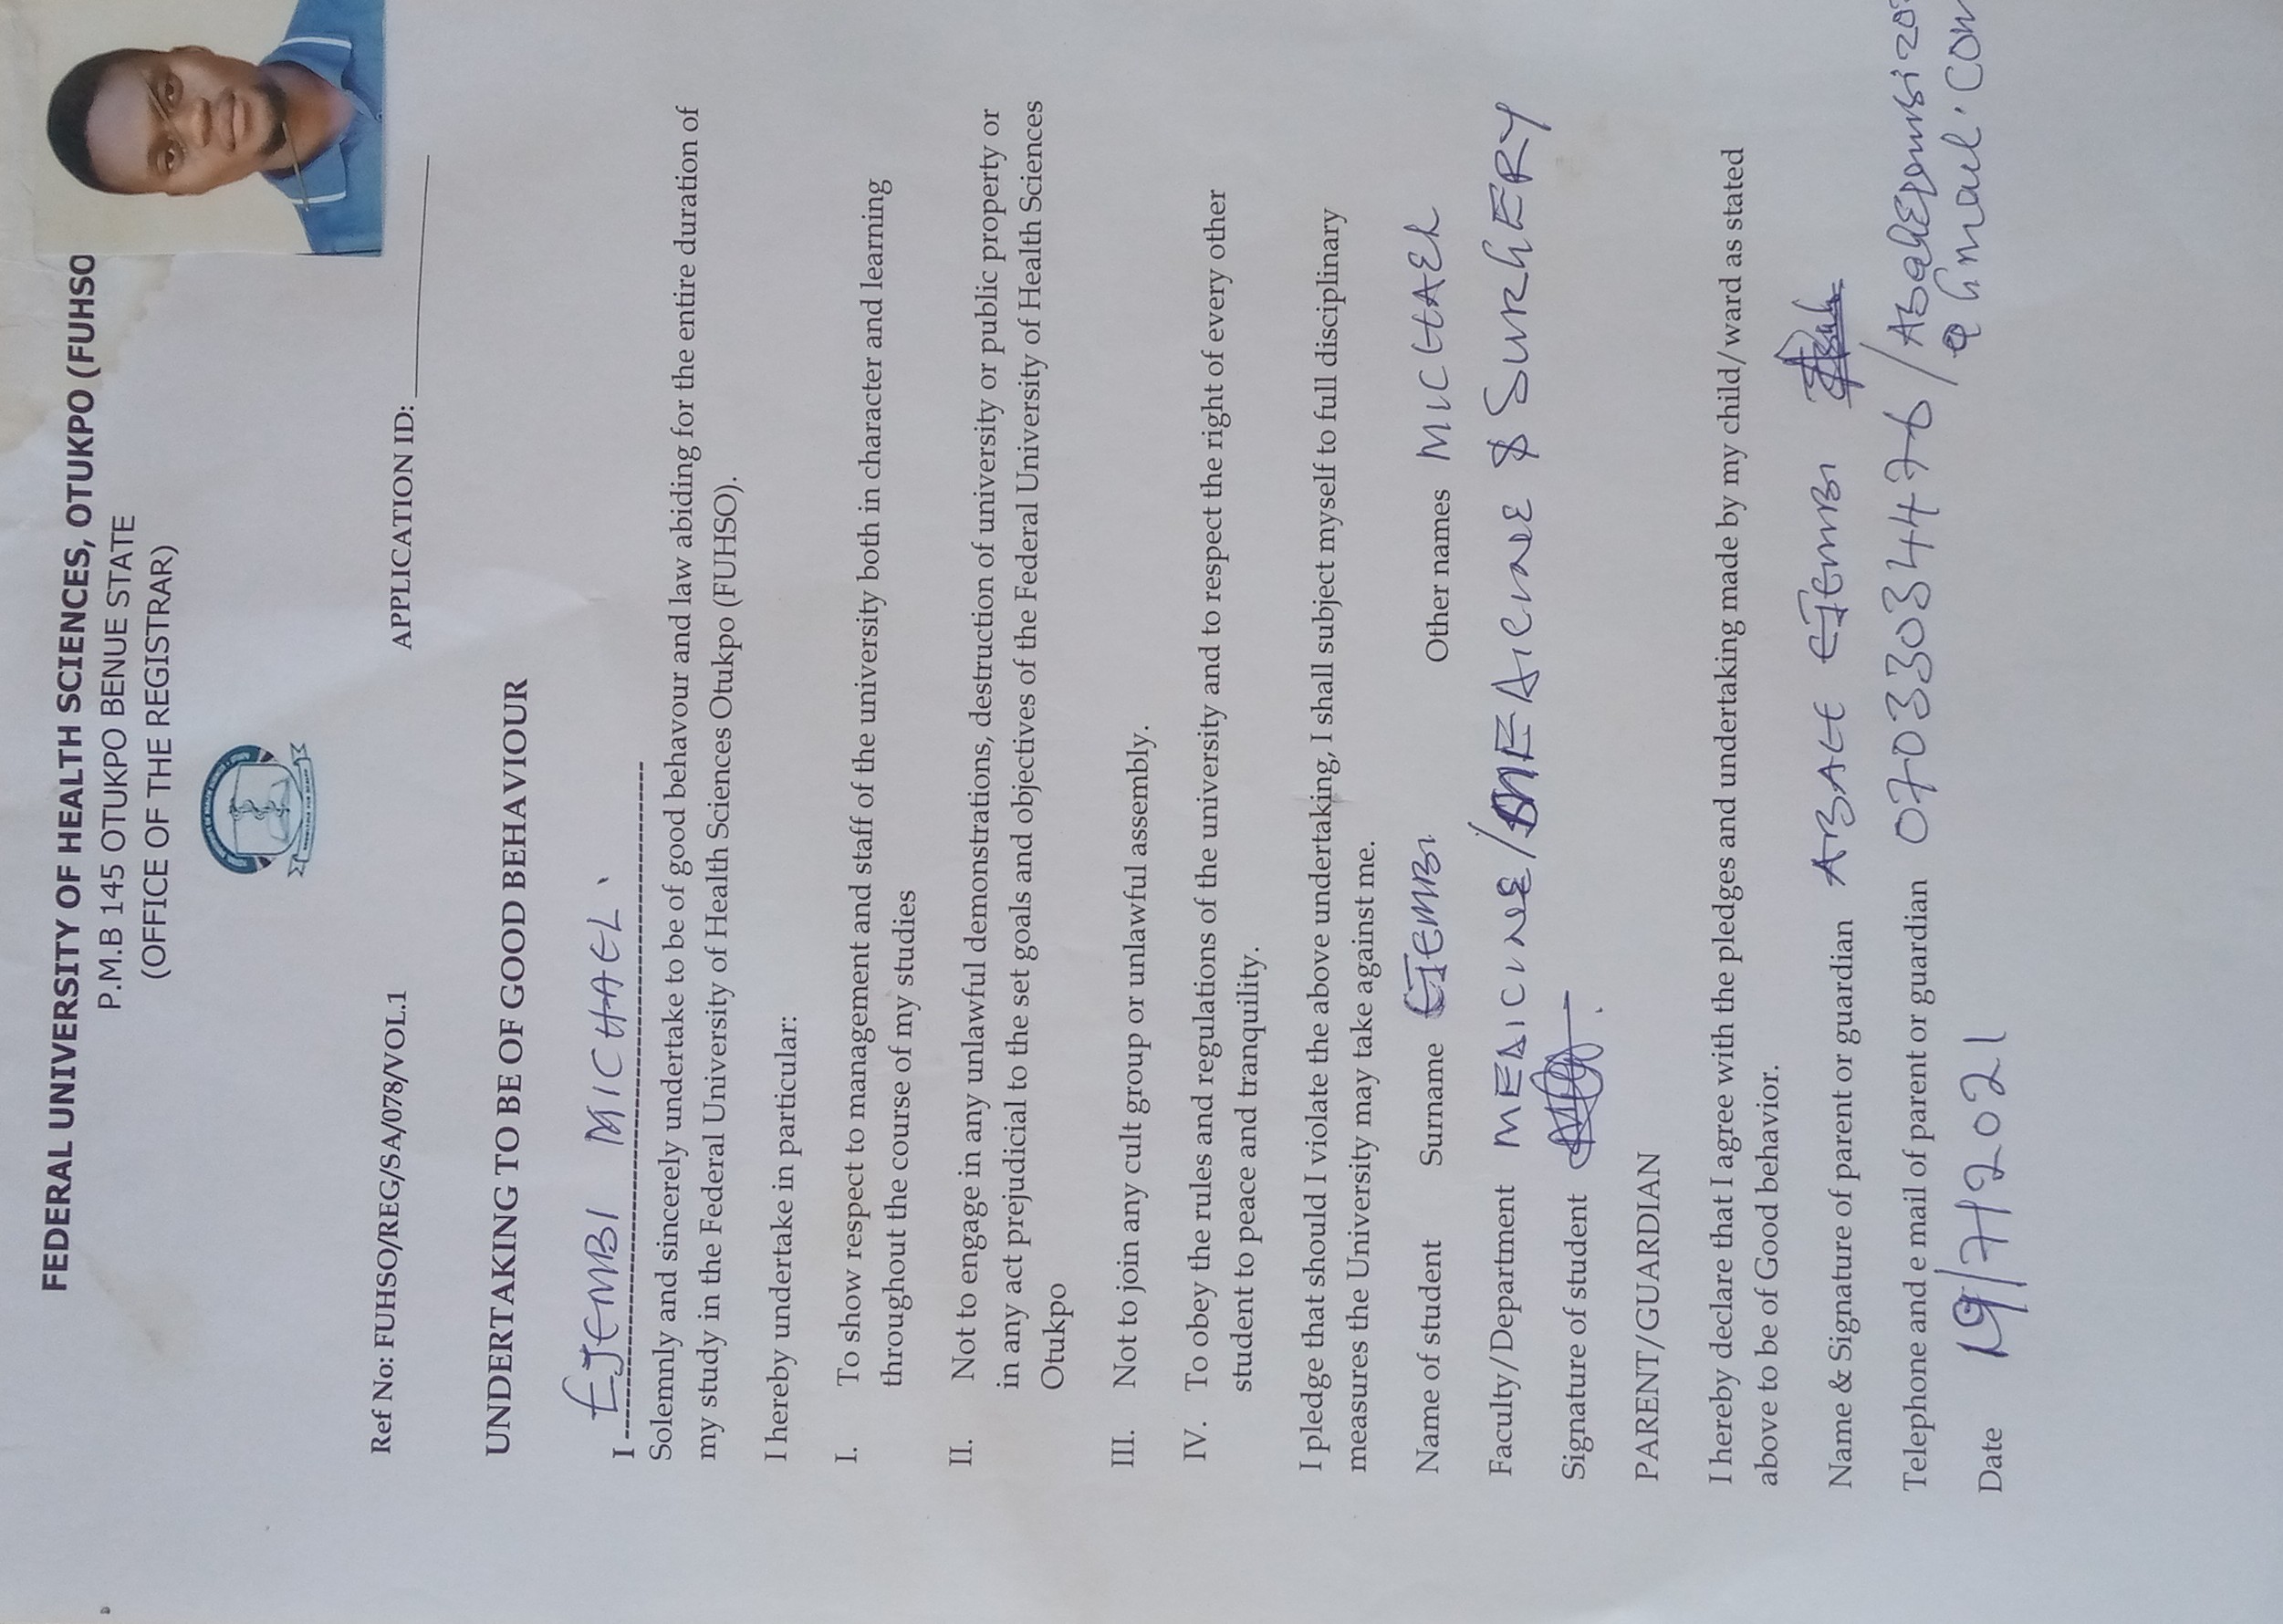 FEDERAL UNIVERSITY OF HEALTH SCIENCES, OTUKPO (FUHSO
P.M.B 145 OTUKPO BENUE STATE
(OFFICE OF THE REGISTRAR)
Ref No: FUHSO/REG/SA/078/VOL.1 APPLICATION ID:
UNDERTAKING TO BE OF GOOD BEHAVIOUR
I EJEMBI MICHAEL.
Solemnly and sincerely undertake to be of good behavour and law abiding for the entire duration of
my study in the Federal University of Health Sciences Otukpo (FUHSO).
I hereby undertake in particular:
I. To show respect to management and staff of the university both in character and learning
throughout the course of my studies
II. Not to engage in any unlawful demonstrations, destruction of university or public property or
in any act prejudicial to the set goals and objectives of the Federal University of Health Sciences
Otukpo
III. Not to join any cult group or unlawful assembly.
IV. To obey the rules and regulations of the university and to respect the right of every other
student to peace and tranquility.
I pledge that should I violate the above undertaking, I shall subject myself to full disciplinary
measures the University may take against me.
Name of student Surname EJEMBI Other names MICHAEL
Faculty/Department MEDICINE/MEDICINE & SURGERY
Signature of student
PARENT/GUARDIAN
I hereby declare that I agree with the pledges and undertaking made by my child/ward as stated
above to be of Good behavior.
Name & Signature of parent or guardian ABAH EJEMBI
Telephone and e mail of parent or guardian 07033034476/
@gmail.com
Date 19/7/2021